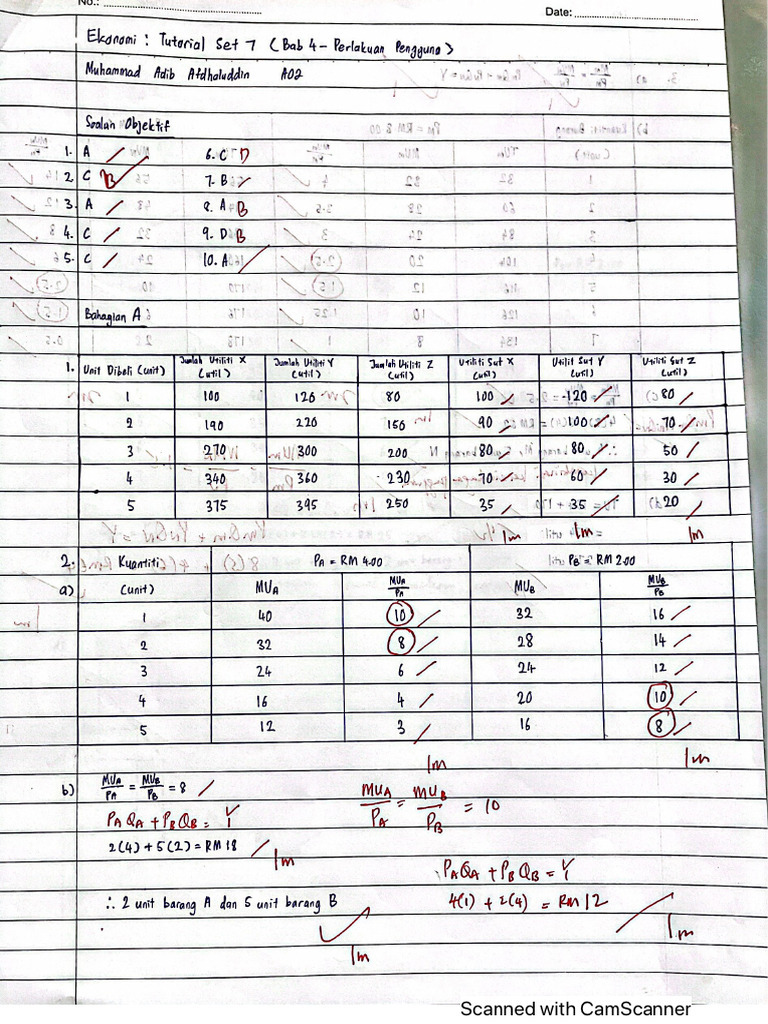 No.:
Date:
Ekonomi : Tutorial Set 7 (Bab 4 - Perlakuan Pengguna)
Muhammad Adib Afdhaluddin A02
Soalan Objektif
1. A 6. C D
2. C B 7. B
3. A 8. A B
4. C 9. D B
5. C 10. A
Bahagian A
1. Unit Dibeli (unit) Jumlah Utiliti X (util) Jumlah Utiliti Y (util) Jumlah Utiliti Z (util) Utiliti Sut X (util) Utiliti Sut Y (util) Utiliti Sut Z (util)
1 100 120 80 100 120 80
2 190 220 150 90 100 70
3 270 300 200 80 80 50
4 340 360 230 70 60 30
5 375 395 250 35 35 20
1m 1m 1m
2. Kuantiti PA = RM 4.00 PB = RM 2.00
a) (unit) MUA MUA/PA MUB MUB/PB
1 40 10 32 16
2 32 8 28 14
3 24 6 24 12
4 16 4 20 10
5 12 3 16 8
1m 1m
b) MUA/PA = MUB/PB = 8 MUA/PA = MUB/PB = 10
PAQA + PBQB = Y
2(4) + 5(2) = RM 18 1m
PAQA + PBQB = Y
∴ 2 unit barang A dan 5 unit barang B 4(1) + 2(4) = RM 12
1m 1m
Scanned with CamScanner